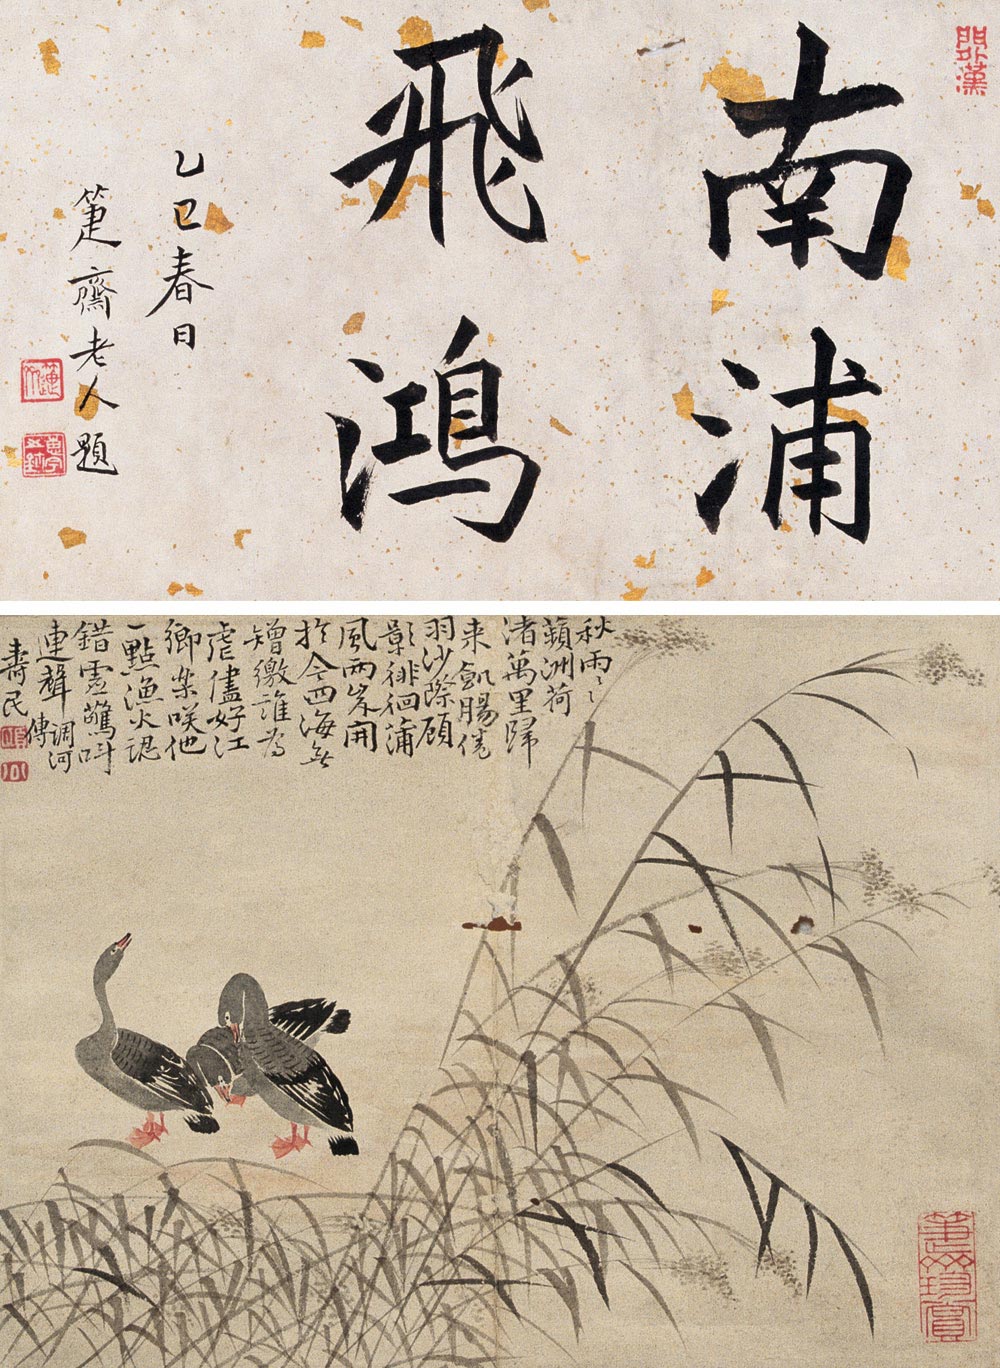 門外漢
南浦
飛鴻
乙巳春日
箑齋老人題
秋雨々
蘋洲荷
渚萬里歸
来飢腸倦
羽沙際顧
影徘徊蒲
風兩岸開
於今四海無
矰繳誰為
虐儘好江
鄉樂咲他
一點漁火認
錯虛驚叫
連聲 調河
傳
壽民